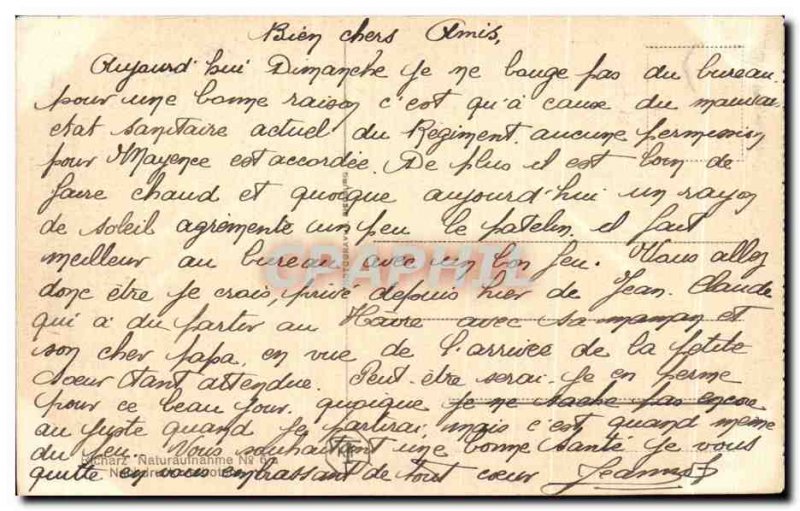 Bien chers Amis,
Aujourd'hui Dimanche je ne bouge pas du bureau
pour une bonne raison c'est qu'à cause du mauvais
etat sanitaire actuel du Régiment aucune permission
pour Mayence est accordée. De plus il est loin de
faire chaud et quoique aujourd'hui un rayon
de soleil agrémente un peu le patelin il fait
meilleur au bureau avec un bon feu. Vous allez
donc être je crois, privé depuis hier de Jean-Claude
qui a du partir au Hâvre avec sa maman et
son cher papa en vue de l'arrivée de la petite
soeur tant attendue. Peut-être serai-je en perme
pour ce beau jour quoique je ne sache pas encore
au juste quand je partirai mais c'est quand même
du feu. Vous souhaitant une bonne santé je vous
quitte en vous embrassant de tout coeur
Richarz Naturaufnahme No 6
CPAPHIL